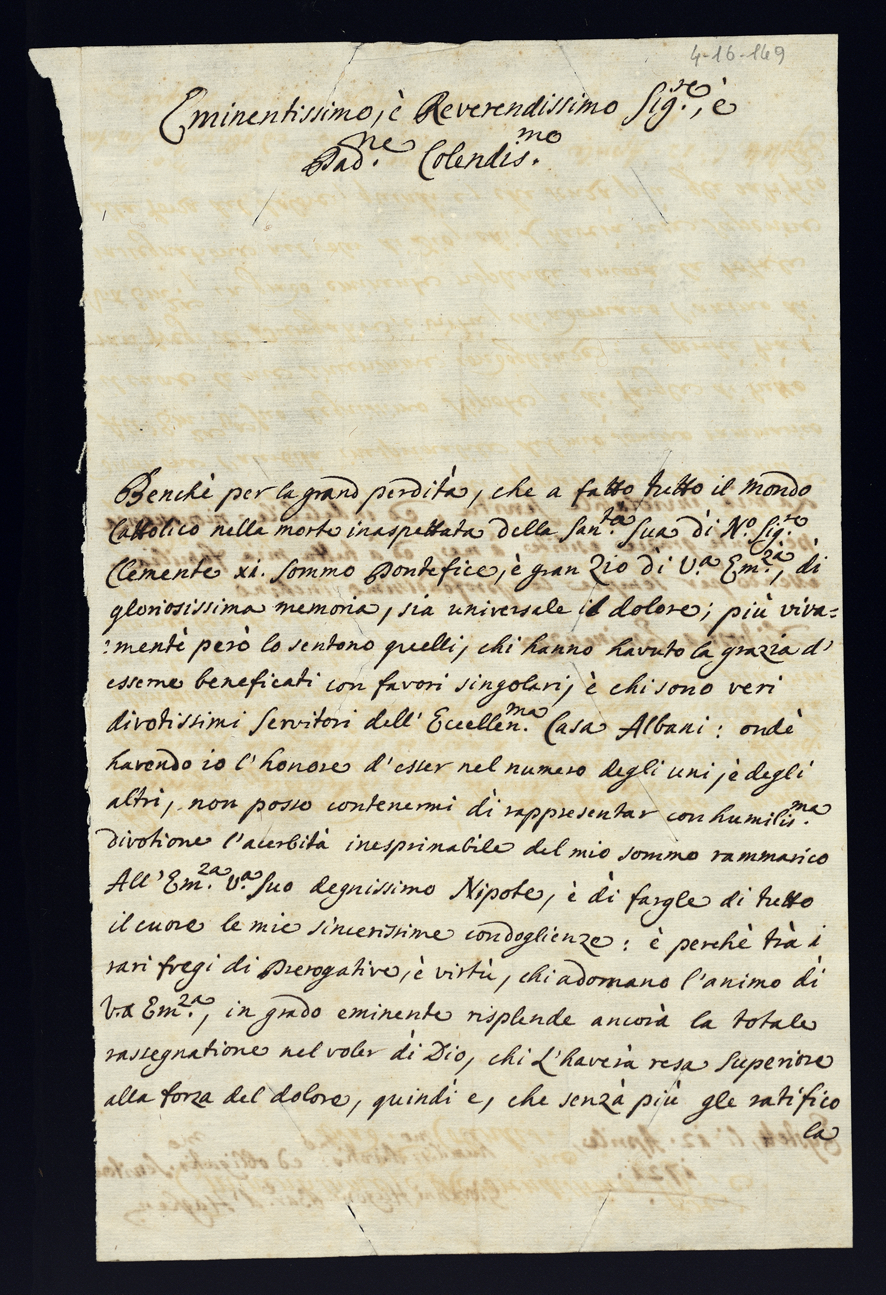 4-16-149
Eminentissimo, è Reverendissimo Sig.re, è
Pad.ne Colendis.mo
Benchè per la grand perdità, che a fatto tutto il mondo
Cattolico nella morte inaspettata della San.tà Sua di N.o Sig.re
Clemente xi. Sommo Pontefice, è gran Zio di V.a Em.za, di
gloriosissima memoria, sia universale il dolore; più viva=
:mentè però lo sentono quelli, chi hanno havuto la grazia d'
esserne beneficati con favori singolari, è chi sono veri
divotissimi Servitori dell' Eccellen.ma Casa Albani: ondè
havendo io l'honore d'esser nel numero degli uni, è degli
altri, non posso contenermi di rappresentar con humilis.ma
divotione l'acerbità inesprinabile del mio sommo rammarico
All' Em.za V.a Suo degnissimo Nipote, è di fargle di tutto
il cuore le mie sincerissime condoglienze: è perchè trà i
rari fregi di Prerogative, è virtù, chi adornano l'animo di
V.a Em.za, in grado eminente risplende ancorà la totale
rassegnatione nel voler di Dio, chi L'haverà resa Superiore
alla forza del dolore, quindi e, che senzà più gle ratifico
la